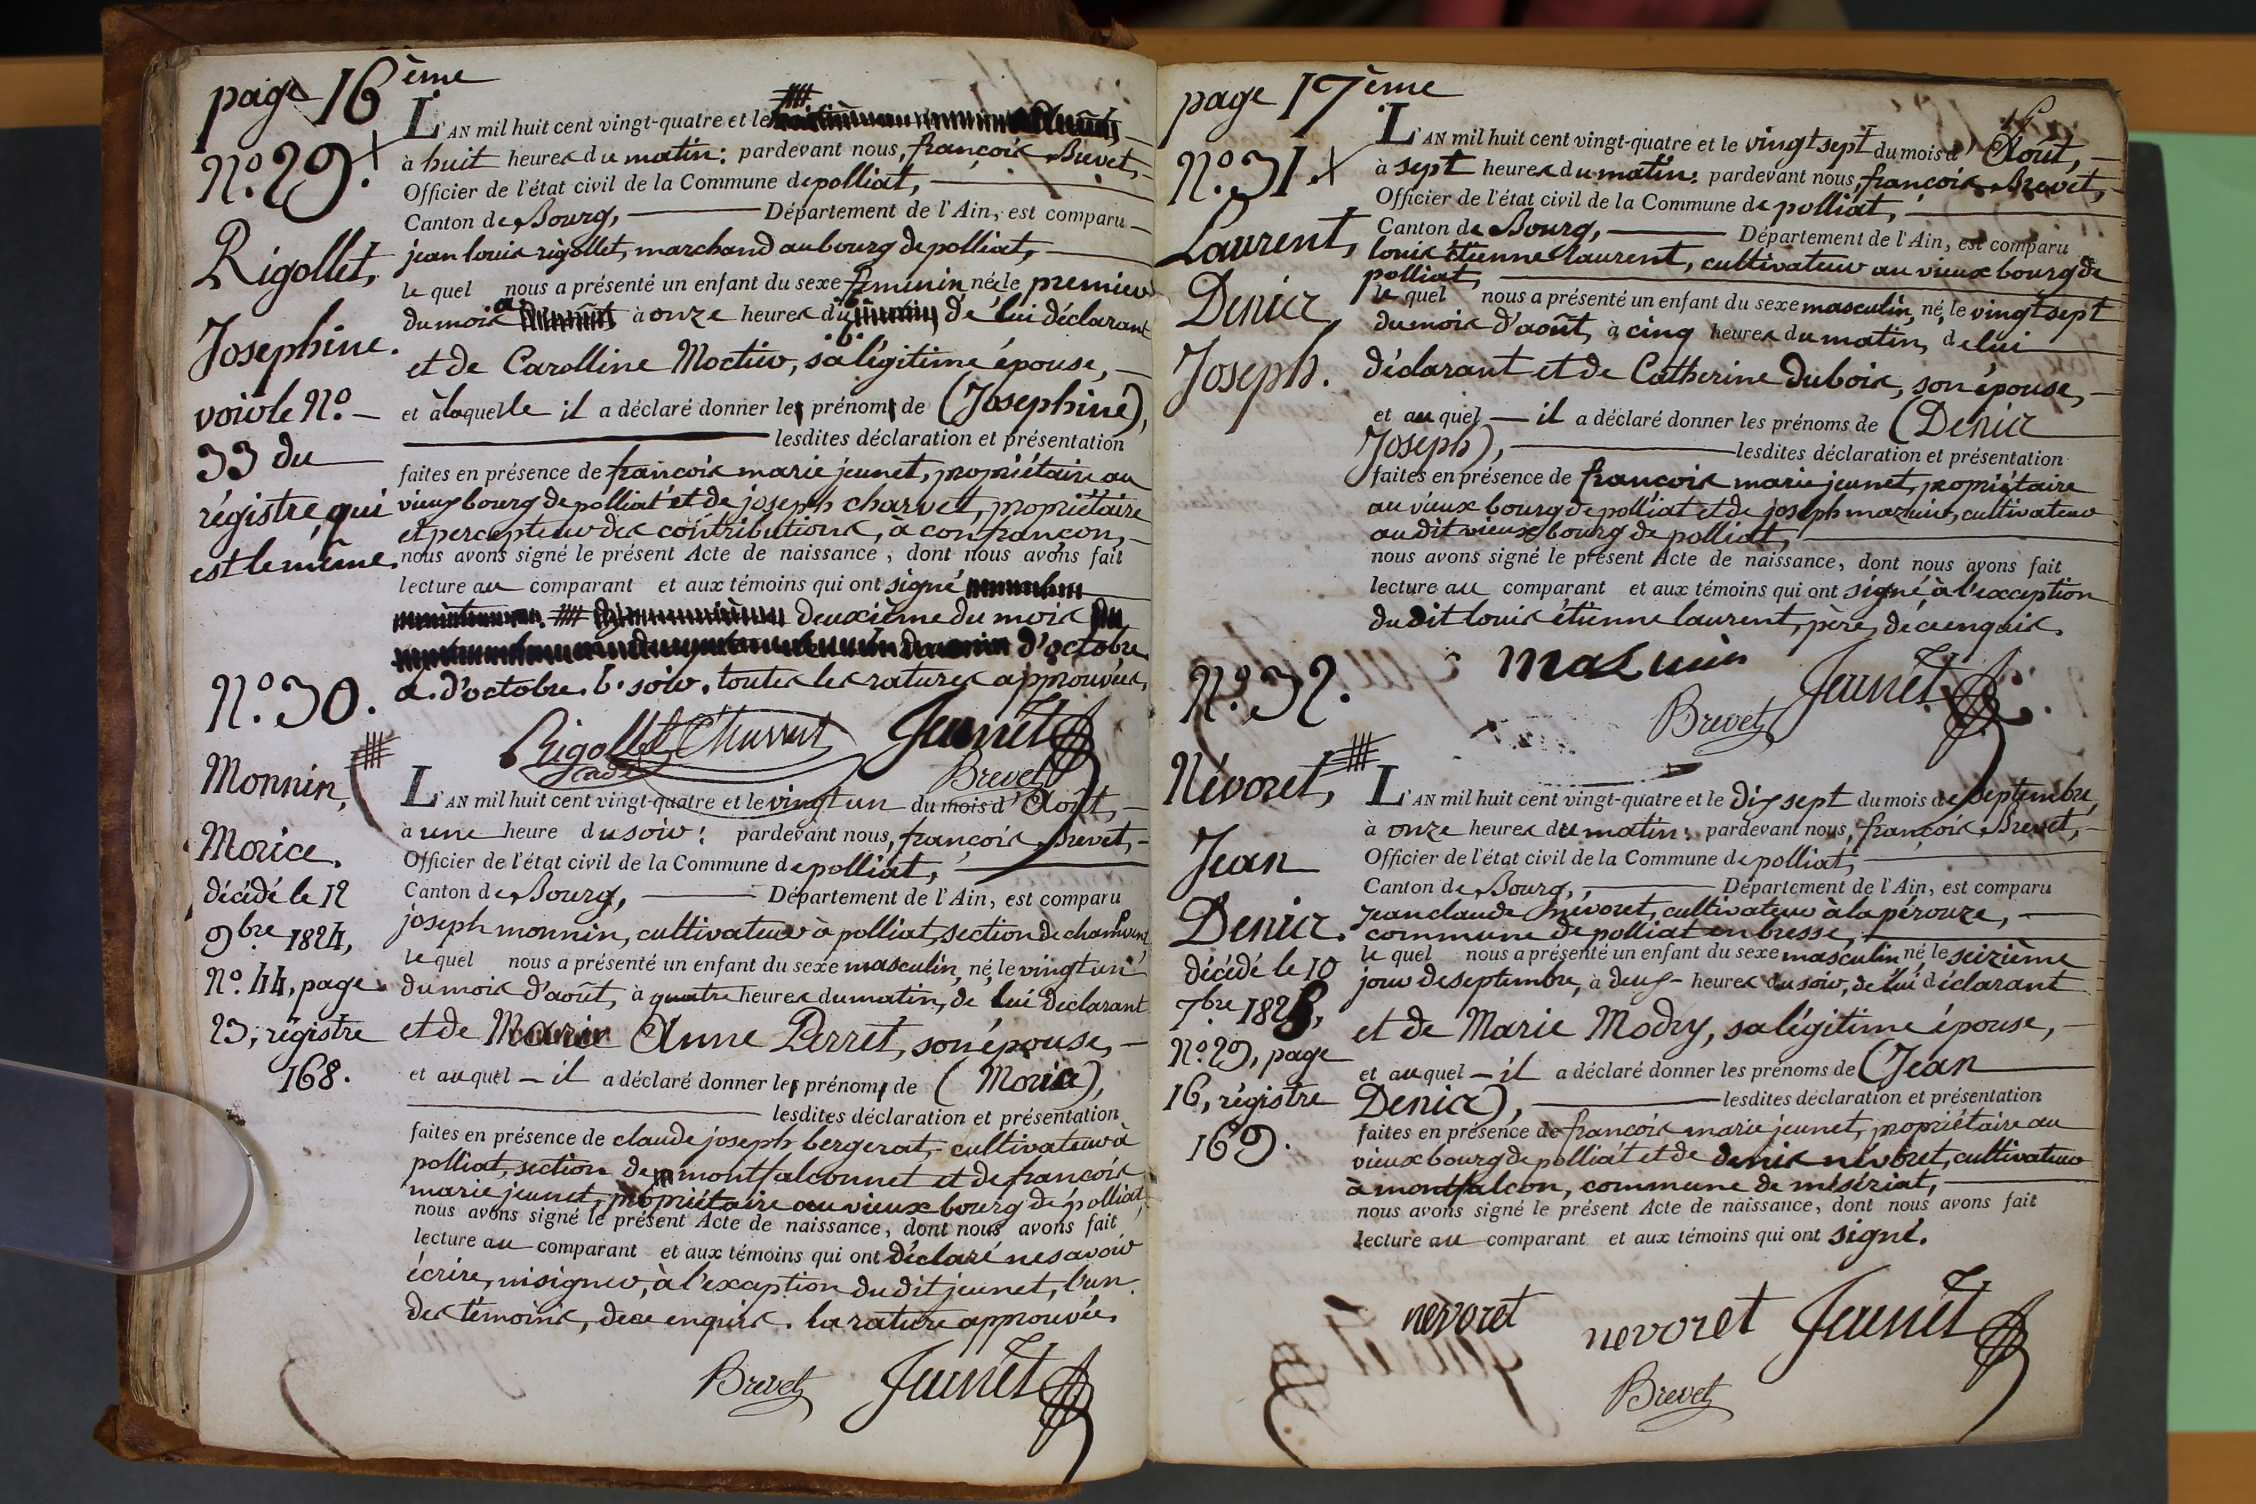 page 16ème
N.º 29.
Rigollet,
Josephine.
voir le N.º
33 du
régistre, qui
est le même.
L'AN mil huit cent vingt-quatre et le
à huit heures du matin: pardevant nous, françois Brevet,
Officier de l'état civil de la Commune de polliat,
Canton de Bourg, Département de l'Ain, est comparu
jean louis rigollet, marchand au bourg de polliat,
le quel nous a présenté un enfant du sexe féminin né le premier
du mois a à onze heures du b de lui déclarant
et de Carolline Moctier, sa légitime épouse,
et à laquelle il a déclaré donner les prénoms de (Josephine),
lesdites déclaration et présentation
faites en présence de françois marie jeunet, propriétaire au
vieux bourg de polliat et de joseph charvet, propriétaire
et percepteur des contributions, à confrançon,
nous avons signé le présent Acte de naissance, dont nous avons fait
lecture au comparant et aux témoins qui ont signé
deuxième du mois
d'octobre
a. d'octobre. b. soir. toutes les ratures approuvées.
Rigollet Charvet Jeunet
cadet Brevet
N.º 30.
Monnin,
Morice.
décédé le 12
9bre 1824,
N.º 44, page
23, régistre
168.
L'AN mil huit cent vingt-quatre et le vingt un du mois d'Août,
à une heure du soir: pardevant nous, françois Brevet,
Officier de l'état civil de la Commune de polliat,
Canton de Bourg, Département de l'Ain, est comparu
joseph monnin, cultivateur à polliat, section de
le quel nous a présenté un enfant du sexe masculin, né le vingt un
du mois d'août, à quatre heures du matin, de lui déclarant
et de Marie Anne Perret, son épouse,
et au quel il a déclaré donner les prénoms de (Morice),
lesdites déclaration et présentation
faites en présence de claude joseph bergerat, cultivateur à
polliat, section de montfalconnet et de françois
marie jeunet, propriétaire au vieux bourg de polliat,
nous avons signé le présent Acte de naissance, dont nous avons fait
lecture au comparant et aux témoins qui ont déclaré ne savoir
écrire, ni signer, à l'exception du dit jeunet, l'un
des témoins, de ce enquis. la rature approuvée.
Brevet Jeunet
page 17ème
N.º 31.
Laurent,
Denis
Joseph.
L'AN mil huit cent vingt-quatre et le vingt sept du mois d'Août,
à sept heures du matin: pardevant nous, françois Brevet,
Officier de l'état civil de la Commune de polliat,
Canton de Bourg, Département de l'Ain, est comparu
louis étienne laurent, cultivateur au vieux bourg de
polliat,
le quel nous a présenté un enfant du sexe masculin, né, le vingt sept
du mois d'août, à cinq heures du matin, de lui
déclarant et de Catherine Dubois, son épouse,
et au quel il a déclaré donner les prénoms de (Denis
Joseph), lesdites déclaration et présentation
faites en présence de françois marie jeunet, propriétaire
au vieux bourg de polliat et de joseph mazuir, cultivateur
au dit vieux bourg de polliat,
nous avons signé le présent Acte de naissance, dont nous avons fait
lecture au comparant et aux témoins qui ont signé à l'exception
du dit louis étienne laurent, père, de ce enquis.
Jeunet
Brevet
N.º 32.
Névoret,
Jean
Denis.
décédé le 10
7bre 1825,
N.º 29, page
16, régistre
169.
L'AN mil huit cent vingt-quatre et le dix sept du mois de septembre,
à onze heures du matin: pardevant nous, françois Brevet,
Officier de l'état civil de la Commune de polliat,
Canton de Bourg, Département de l'Ain, est comparu
jean claude névoret, cultivateur à la pérouze,
commune de polliat en bresse,
le quel nous a présenté un enfant du sexe masculin né le seizième
jour de septembre, à deux heures du soir, de lui déclarant
et de Marie Modry, sa légitime épouse,
et au quel il a déclaré donner les prénoms de (Jean
Denis), lesdites déclaration et présentation
faites en présence de françois marie jeunet, propriétaire au
vieux bourg de polliat et de denis névoret, cultivateur
à montfalcon, commune de méziriat,
nous avons signé le présent Acte de naissance, dont nous avons fait
lecture au comparant et aux témoins qui ont signé.
nevoret nevoret Jeunet
Brevet